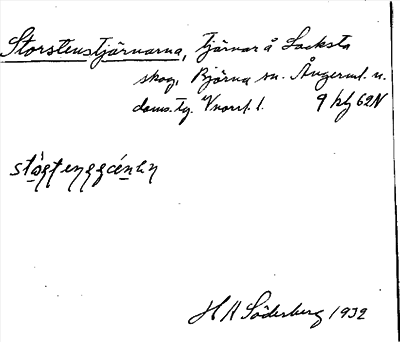 Storstenstjärnarna, tjärnar å Locksta
skog, Björna sn. Ångerml. n.
doms. tg. Vnorrl. l. 9 hJ 62N
H A Söderberg 1932